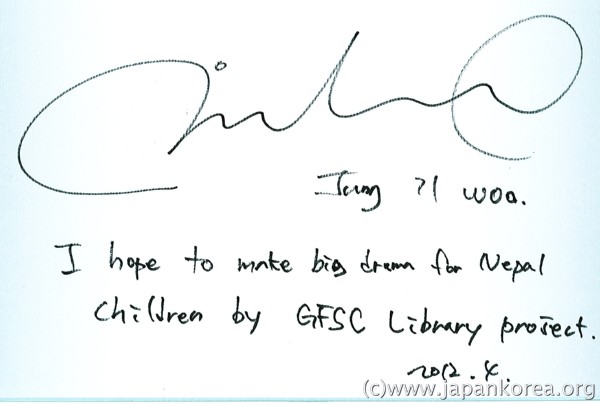 Jung 기 woo.
I hope to make big drama for Nepal
children by GFSC Library project.
2012. 4.
(c)www.japankorea.org